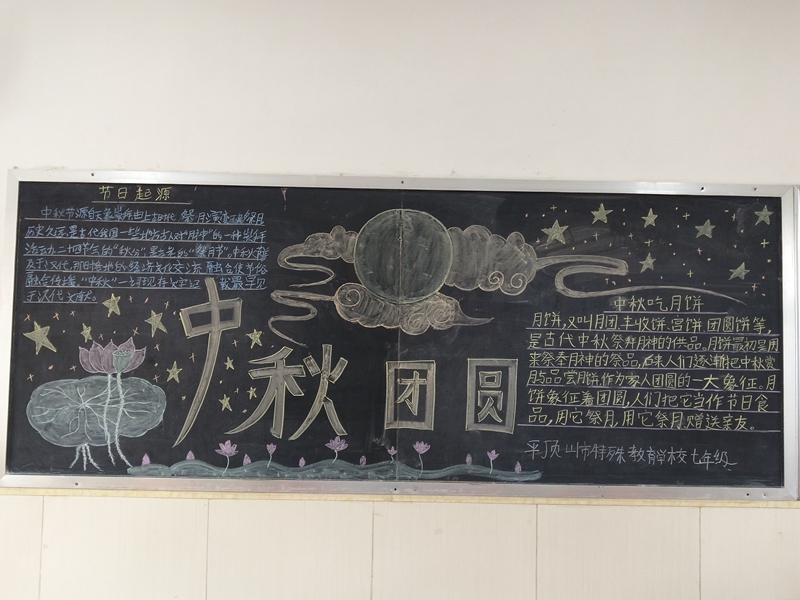 节日起源
中秋节源自天象崇拜由上古时代 祭月
历史久远是古代我国一些地方古人对"月神"的一种崇拜
活动二十四节气的"秋分"是古老的"祭月节"中秋
及于汉代
融合传播"中秋"一词现存文字记载最早见
于汉代文献。
中秋团圆
中秋吃月饼
月饼,又叫月团、丰收饼、宫饼、团圆饼等,
是古代中秋祭奔月神的供品。月饼最初是用
来祭奉月神的祭品,后来人们逐渐把中秋赏
月与品尝月饼作为家人团圆的一大象征。月
饼象征着团圆,人们把它当作节日食
品,用它祭月,用它祭月赠送亲友。
平顶山市特殊教育学校七年级